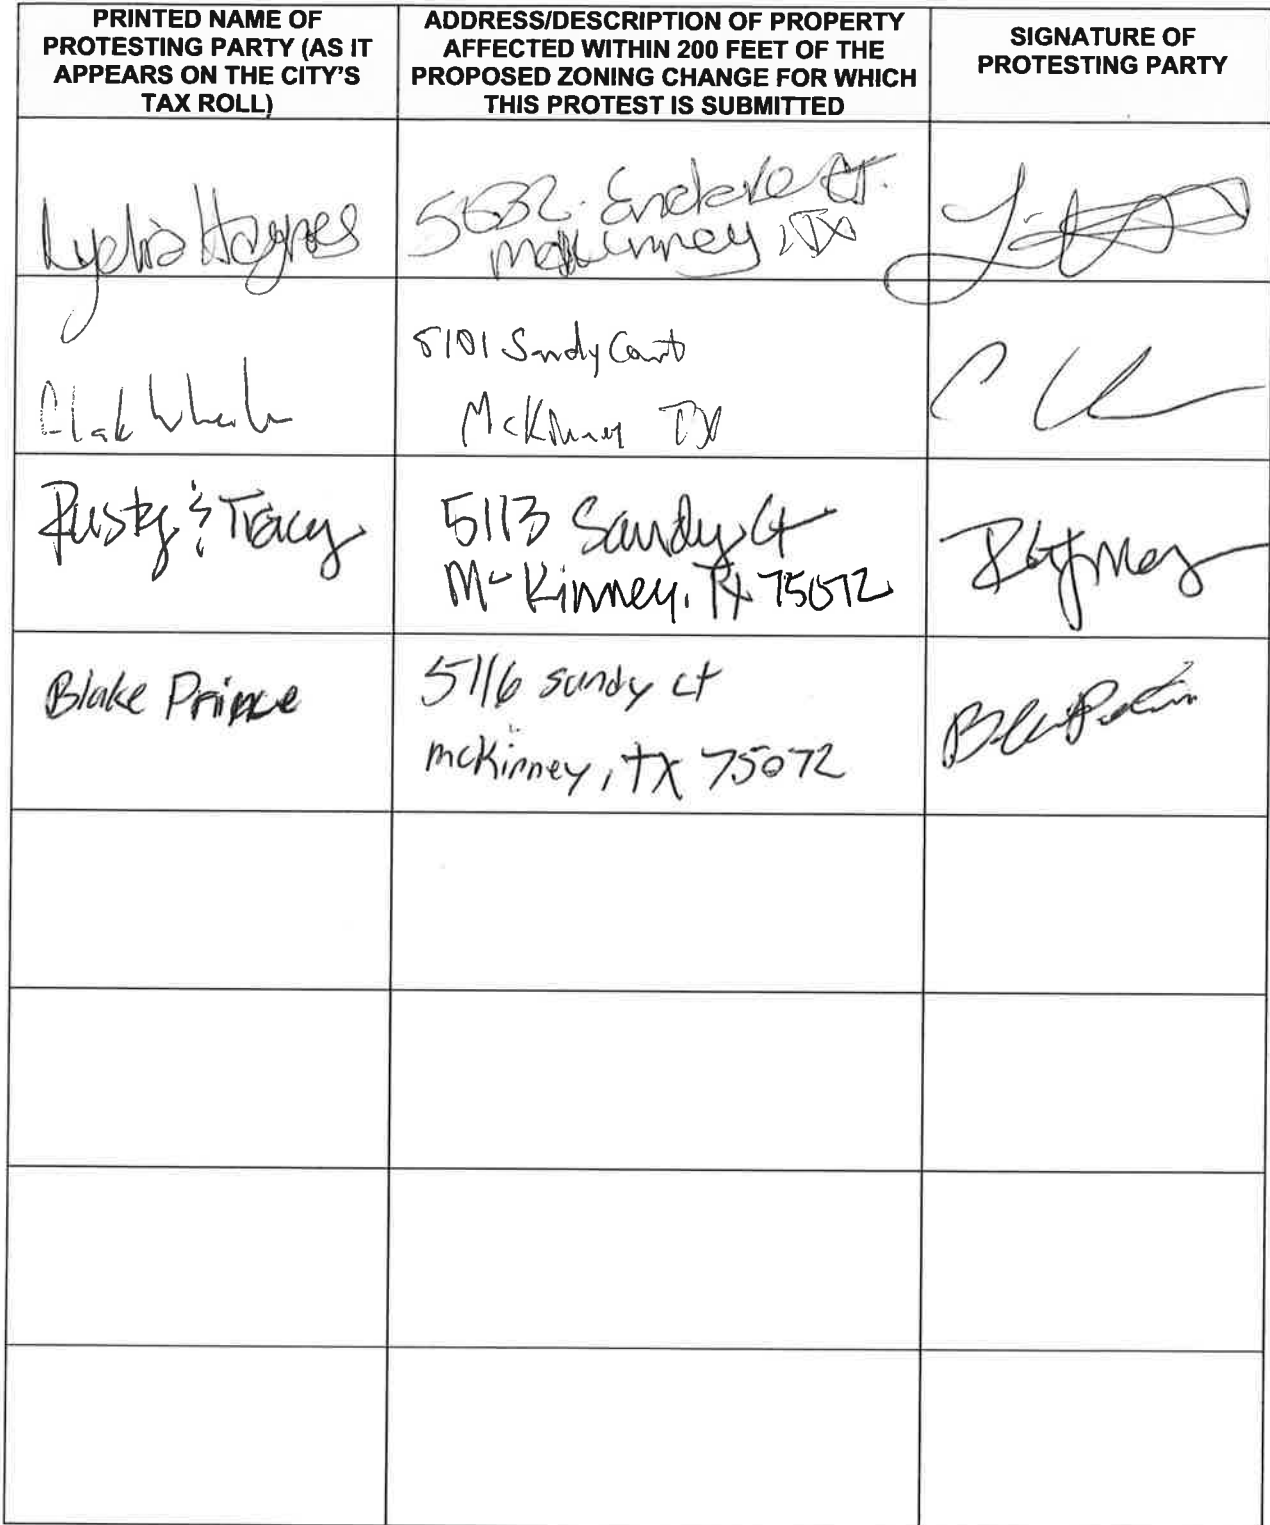 PRINTED NAME OF
PROTESTING PARTY (AS IT
APPEARS ON THE CITY'S
TAX ROLL)
ADDRESS/DESCRIPTION OF PROPERTY
AFFECTED WITHIN 200 FEET OF THE
PROPOSED ZONING CHANGE FOR WHICH
THIS PROTEST IS SUBMITTED
SIGNATURE OF
PROTESTING PARTY
Lydia Haynes
5632 Enclave Ct.
McKinney, TX
5101 Sandy Court
McKinney TX
Rusty & Tracy
5113 Sandy Ct
McKinney, TX 75072
Blake Prince
5116 sandy ct
mcKinney, TX 75072